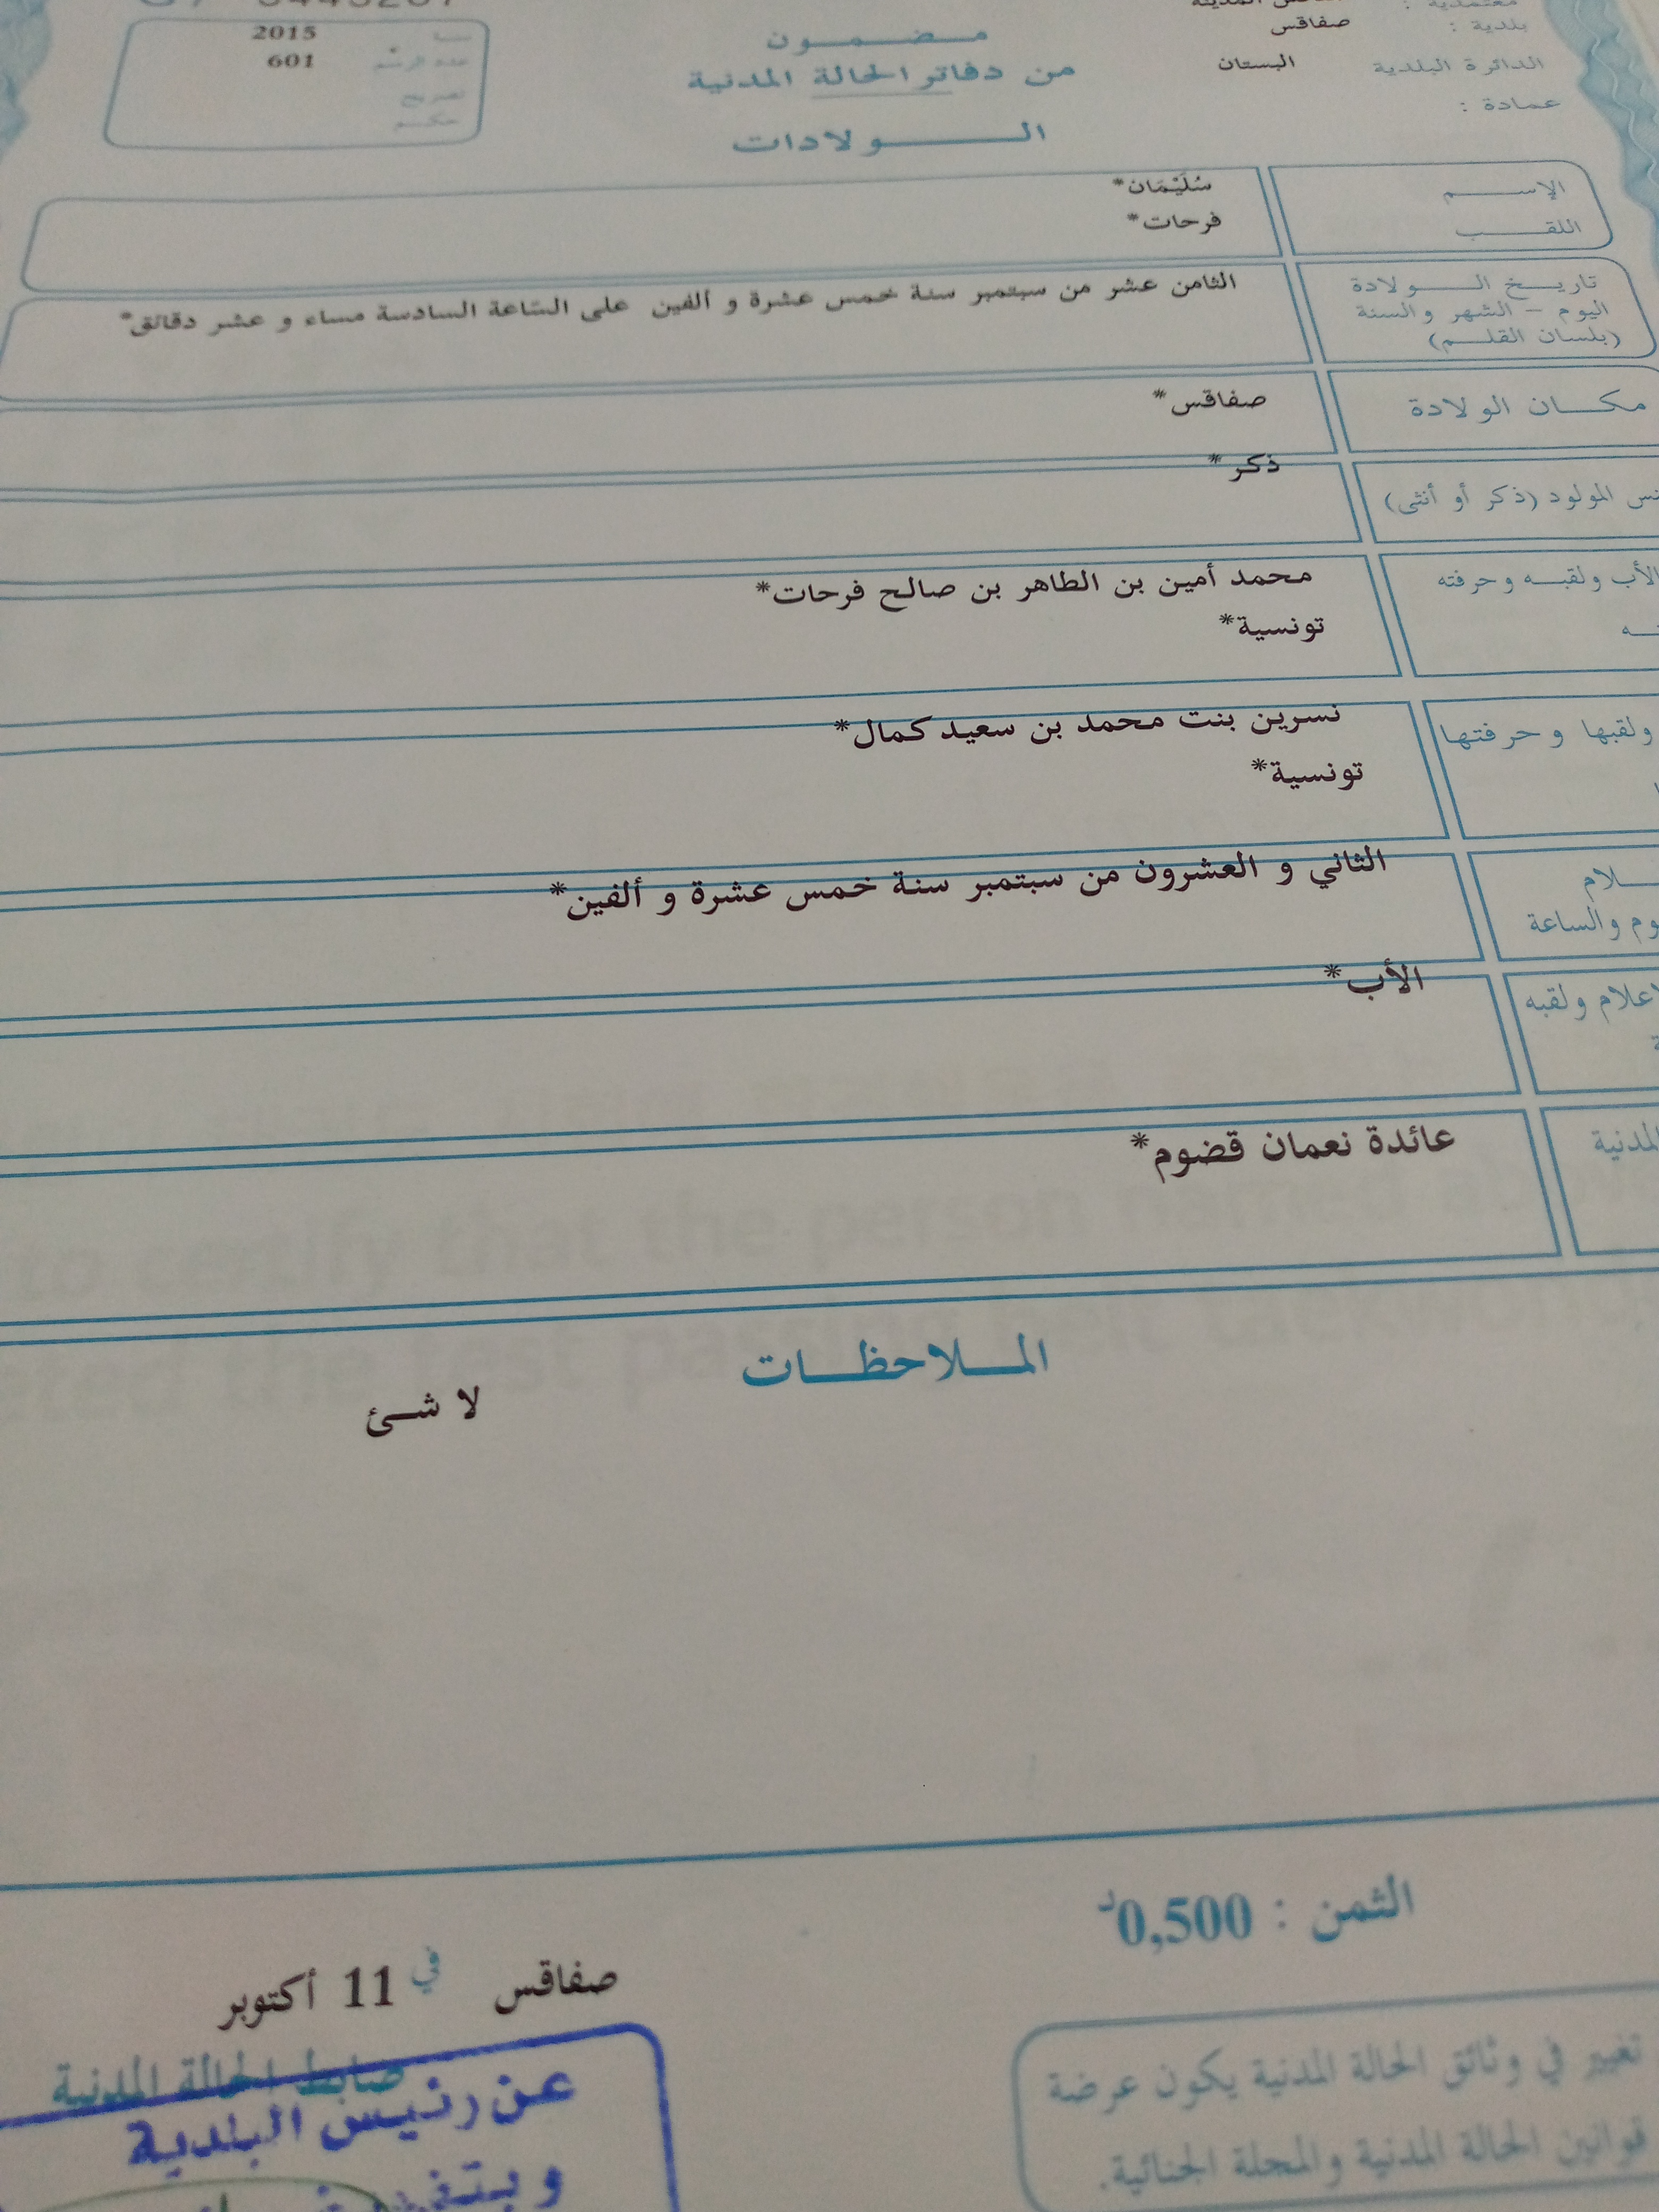 معتمدية :
بلدية : صفاقس
الدائرة البلدية البستان
عمادة :
مضمون
من دفاتر الحالة المدنية
الولادات
2015
عدد الرسم 601
تصريح
حكم
الإسم سُلَيْمَان*
اللقب فرحات*
تاريخ الولادة
اليوم – الشهر والسنة
(بلسان القلم)
الثامن عشر من سبتمبر سنة خمس عشرة و ألفين على السّاعة السادسة مساء و عشر دقائق*
مكان الولادة صفاقس*
المولود (ذكر أو أنثى) ذكر*
الأب ولقبه وحرفته محمد أمين بن الطاهر بن صالح فرحات*
تونسية*
ولقبها وحرفتها نسرين بنت محمد بن سعيد كمال*
تونسية*
الثاني و العشرون من سبتمبر سنة خمس عشرة و ألفين*
والساعة
ولقبه الأب*
المدنية عائدة نعمان قضوم*
to certify that the person named
الملاحظات
لا شئ
الثمن : 0,500د
صفاقس في 11 أكتوبر
ضابط الحالة المدنية
عن رئيس البلدية
تغيير في وثائق الحالة المدنية يكون عرضة
قوانين الحالة المدنية والمجلة الجنائية.